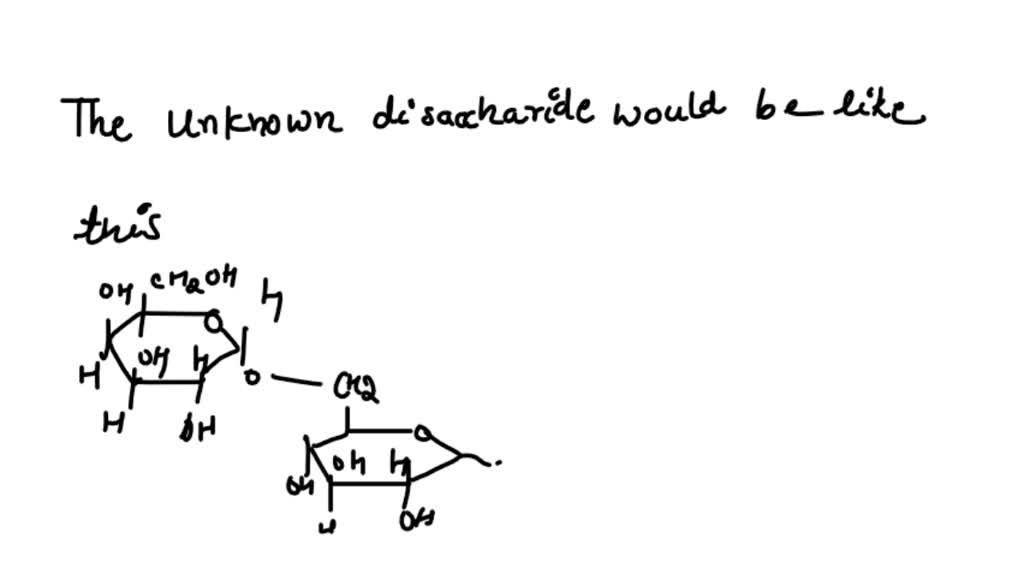 The unknown disaccharide would be like
this
OH CH2OH H
O
OH H
H O CH2
H OH
O
OH H
OH
H OH